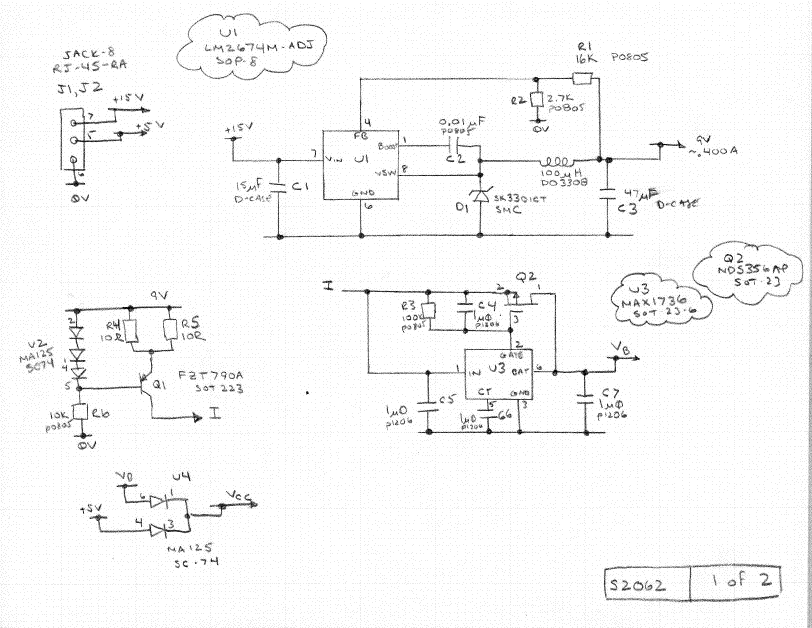 JACK-8
RJ-45-RA
J1, J2
+15V
7
+5V
5
6
0V
U1
LM2674M-ADJ
SOP-8
R1
16K P0805
R2 2.7K
P0805
0V
4
FB
0.01µF
P0805
Boost 1
C2
+15V
7 VIN U1
VSW 8
GND
6
15µF
D-CASE
C1
100µH
DO3308
D1
SK33DICT
SMC
9V
~.400A
47µF
C3 D-CASE
Q2
NDS356AP
SOT-23
U3
MAX1736
SOT 23-6
9V
2
V2
MA125
SC74
1
4
5
R4
10R
R5
10R
FZT790A
SOT 223
Q1
I
10K
P0805
R6
0V
I
Q2
2
1
3
R3
100K
P0805
C4
1µ0
P1206
2
GATE
1 IN U3 BAT 6
CT GND
5 3
VB
C5
1µ0
P1206
1µ0
P1206
C6
C7
1µ0
P1206
VB
U4
6 1
+5V
4 3
VCC
MA125
SC-74
S2062
1 of 2